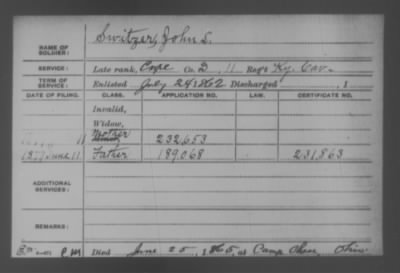 NAME OF SOLDIER: Switzer, John S.
SERVICE: Late rank, Corp Co. D, 11 Reg't Ky. Cav.
TERM OF SERVICE: Enlisted July 24 1862 Discharged , 1
DATE OF FILING. CLASS. APPLICATION NO. LAW. CERTIFICATE NO.
Invalid,
Widow,
11 Mother 232,653
1877 June 11 Father 189,068 231,863
ADDITIONAL SERVICES:
REMARKS:
Died June 25, 1865, at Camp Ohio